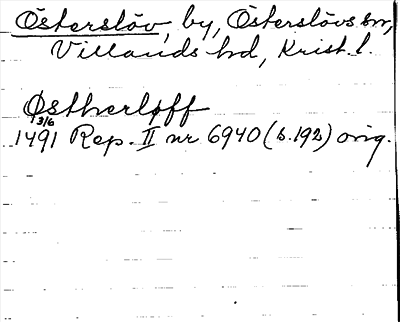 Österslöv, by, Österslövs sn,
Villands hd, Krist. l.
Østherløff
3/6
1491 Rep. II nr 6940 (s. 192) orig.